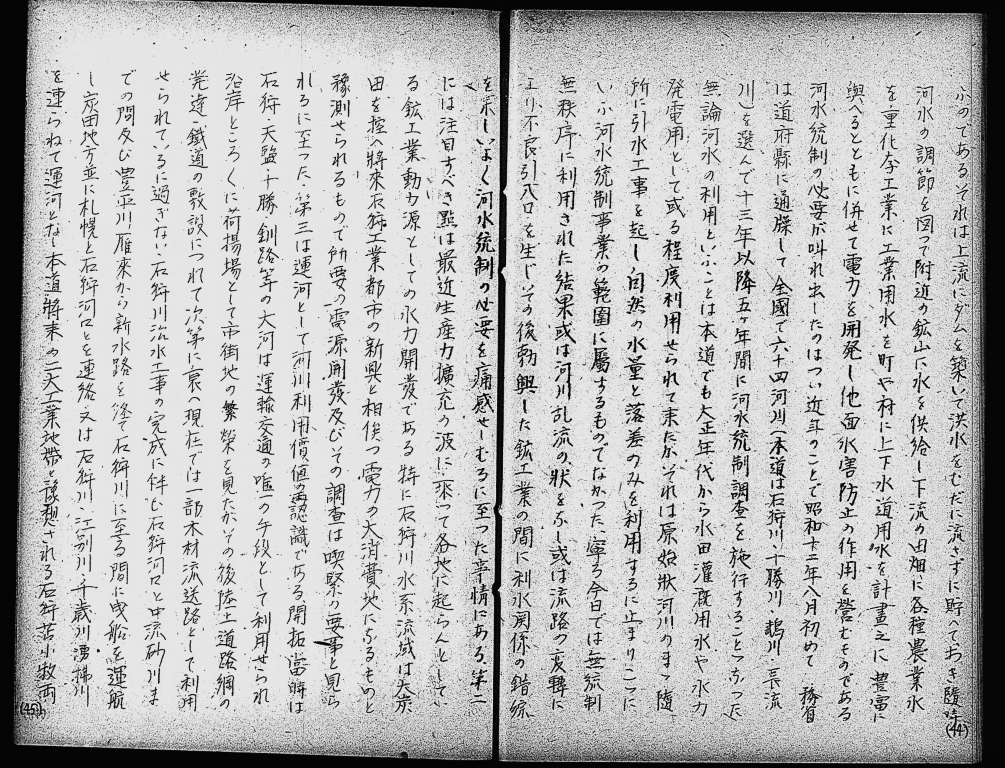 ふのである それは上流にダムを築いて洪水をむだに流さずに貯へておき隨時
河水の調節を図つて附近の鉱山に水を供給し下流の田畑に各種農業水
を重化学工業に工業用水を町や村に上下水道用水を計畫之に豊富に
與へるとともに併せて電力を開発し他面水害防止の作用を営むものである
河水統制の必要が叫れ出したのはつい近年のことで昭和十二年八月初めて 務省
は道府縣に通牒して全國で六十四河川(本道は石狩川、十勝川、鵡川、長流
川)を選んで十三年以降五ヶ年間に河水統制調査を施行することゝなつた
無論河水の利用といふことは本道でも大正年代から水田灌漑用水や水力
発電用として或る程度利用せられて来たがそれは原始状河川のまゝ隨
所に引水工事を起し自然の水量と落差のみを利用するに止まりこゝに
いふ河水統制事業の範囲に屬するものでなかつた、寧ろ今日では無統制
無秩序に利用された結果或は河川乱流の状をなし或は流路の変轉に
より不良引入口を生じその後勃興した鉱工業の間に利水関係の錯綜
(44)
を来しいよく河水統制の必要を痛感せしむるに至つた事情にある、第二
には注目すべき點は最近生産力擴充の波に乗つて各地に起らんとしてい
る鉱工業動力源としての水力開發である 特に石狩川水系流域は大炭
田を控へ将來石狩工業都市の新興と相俟つ電力の大消費地になるものと
豫測せられるもので所要の電源開發及びその調査は喫緊の要事と見ら
れるに至つた、第三は運河として河川利用價値の再認識である 開拓當時は
石狩、天塩、十勝、釧路等の大河は運輸交通の唯一の手段として利用せられ
沿岸ところくに荷揚場として市街地の繁榮を見たがその後陸上道路網の
発達、鐵道の敷設につれて次第に衰へ現在では一部木材流送路として利用
せられているに過ぎない、石狩川治水工事の完成に伴ひ石狩河口と中流砂川ま
での間及び豊平川、雁来から新水路を経て石狩川に至る間に曳船を運航
し炭田地方並に札幌と石狩河口とを連絡、又は石狩川、江別川、千歳川、湧拂川
を連らねて運河となし本道将来の二大工業地帯と豫想される石狩苫小牧両
(45)